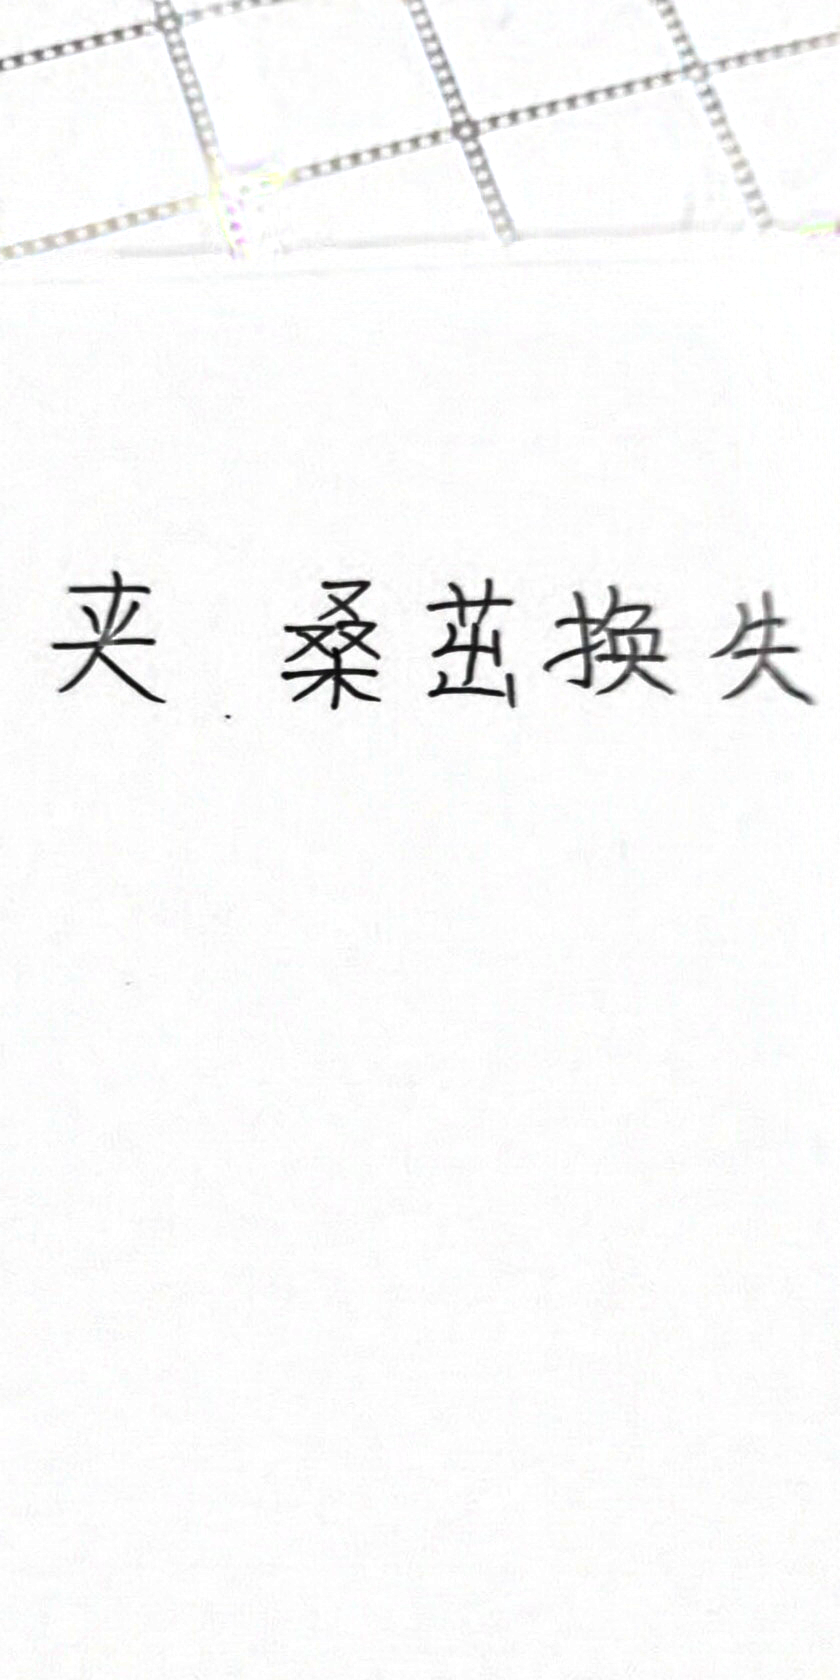 夹 桑茁换失